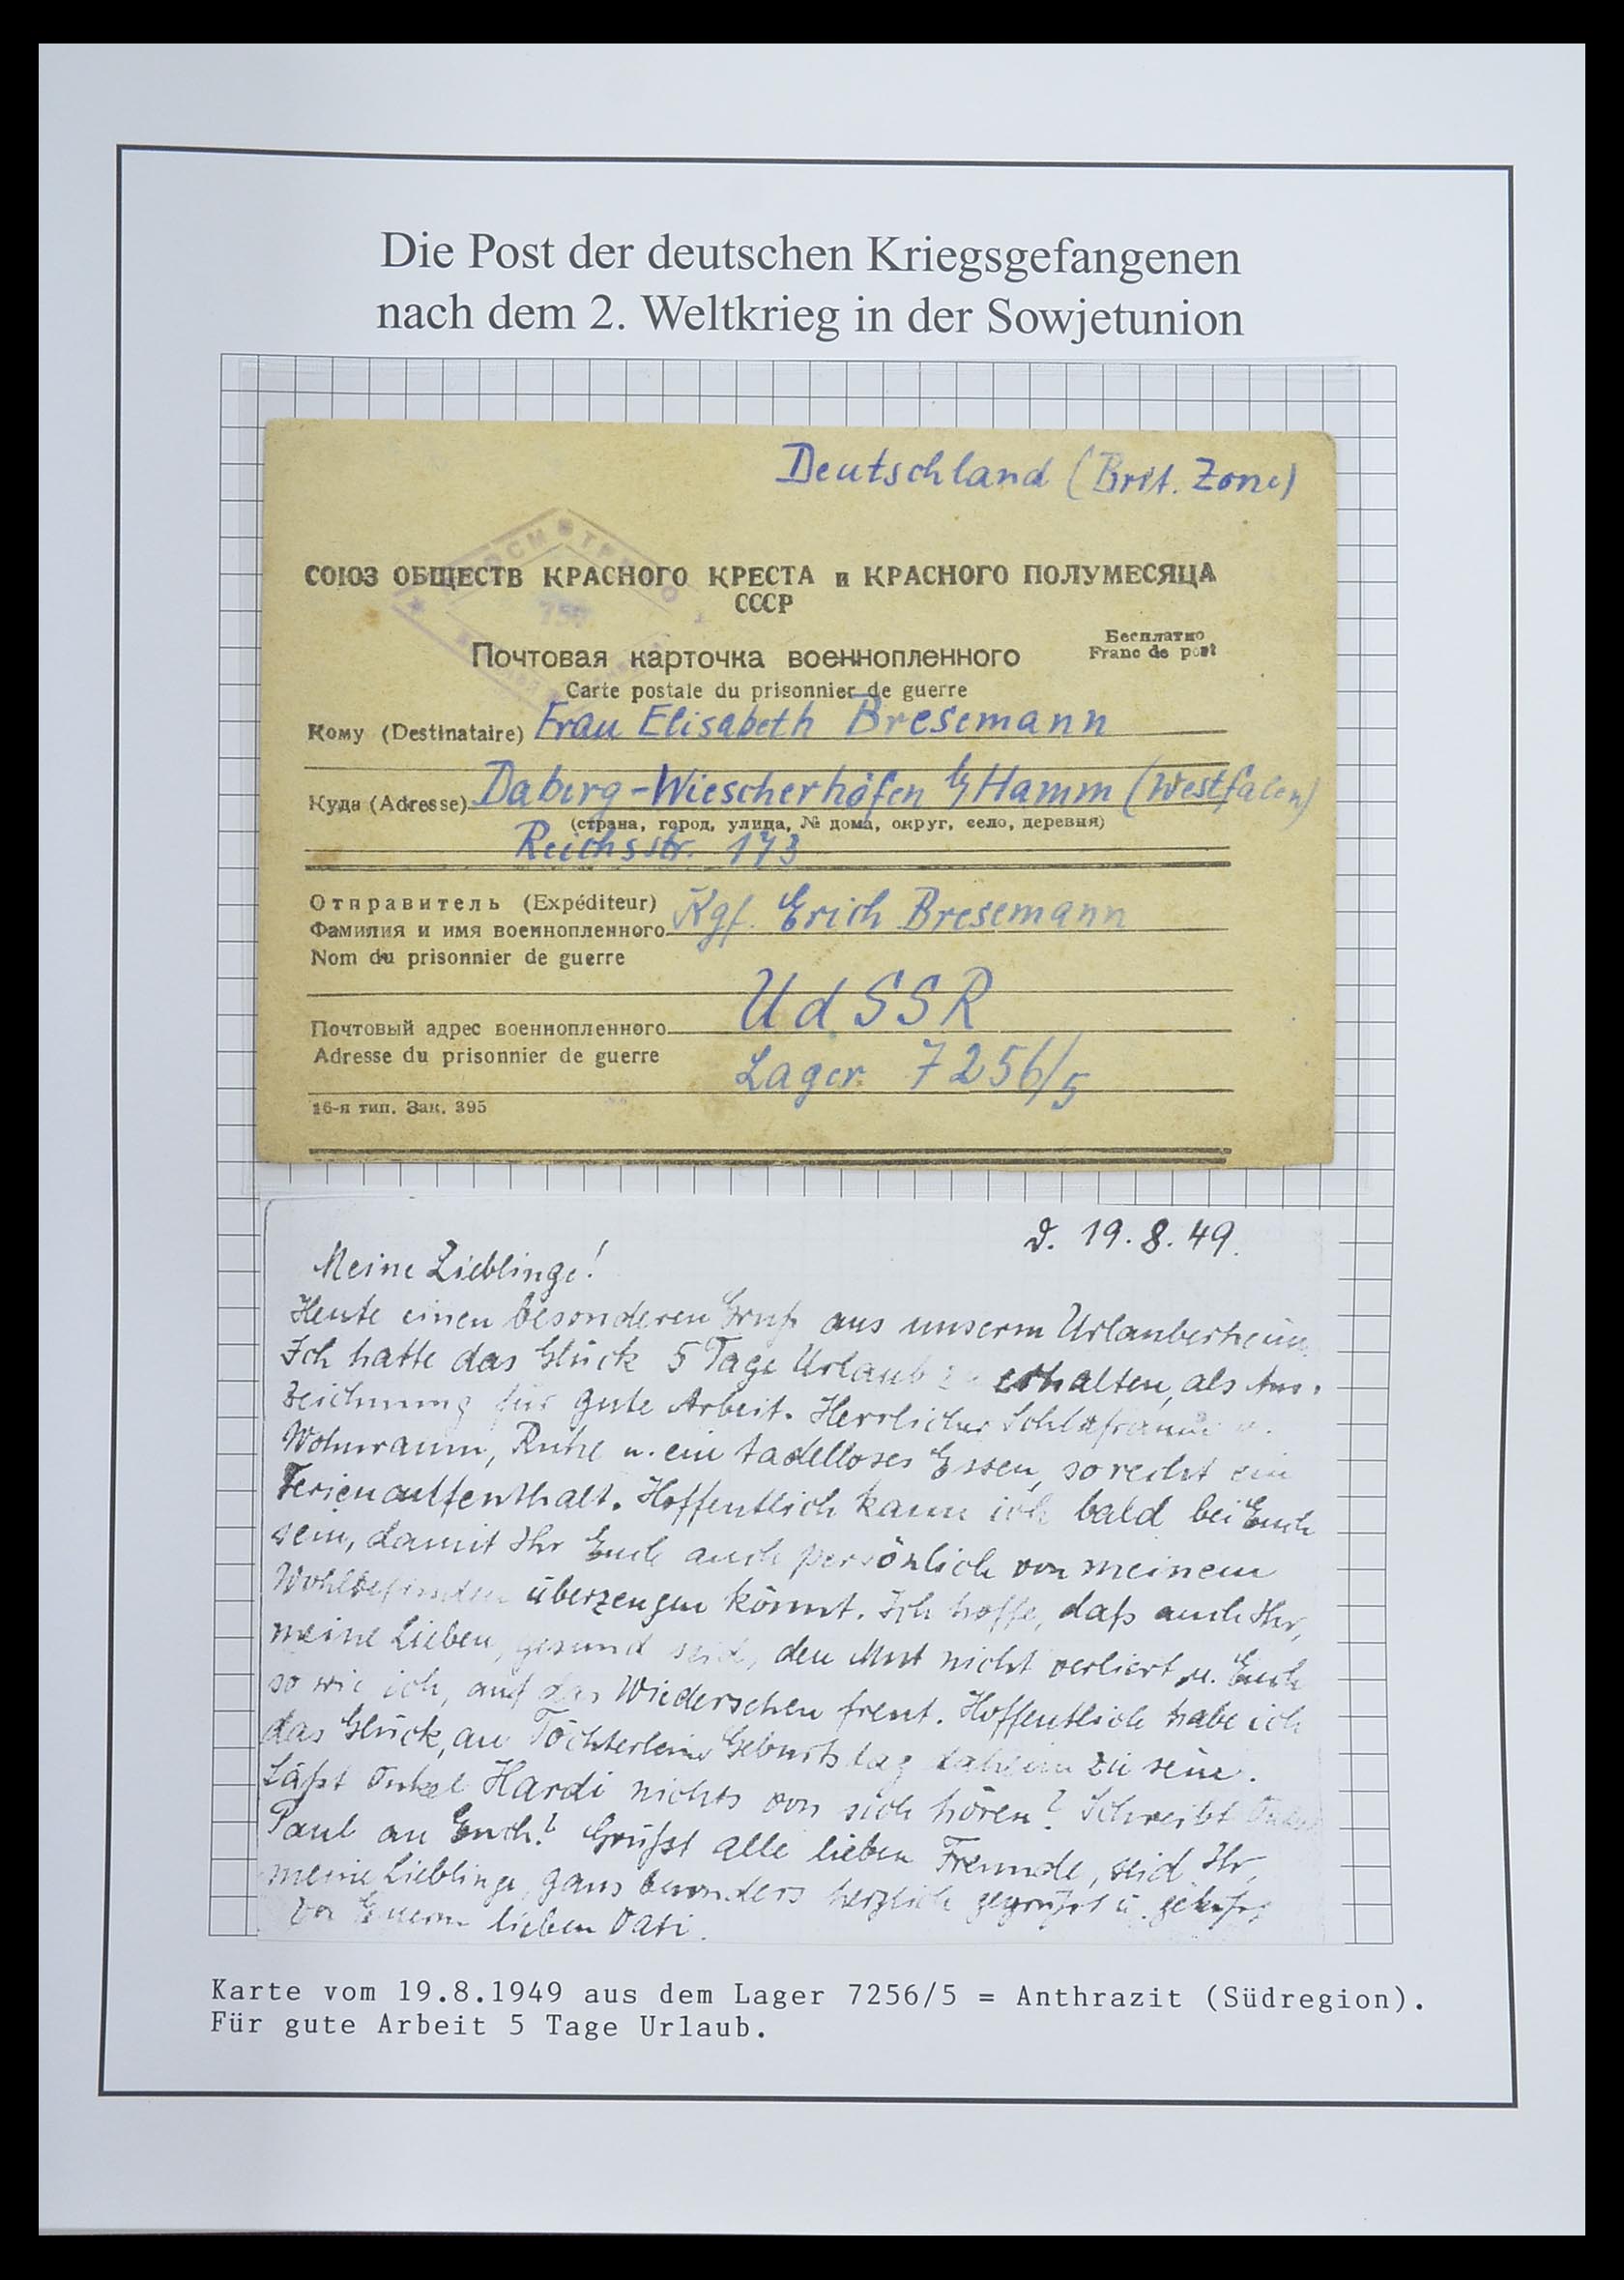 Die Post der deutschen Kriegsgefangenen
nach dem 2. Weltkrieg in der Sowjetunion
Deutschland (Brit. Zone)
СОЮЗ ОБЩЕСТВ КРАСНОГО КРЕСТА и КРАСНОГО ПОЛУМЕСЯЦА
СССР
Почтовая карточка военнопленного
Бесплатно
Franc de port
Carte postale du prisonnier de guerre
Кому (Destinataire) Frau Elisabeth Bresemann
Куда (Adresse) Daberg-Wiescherhöfen b/ Hamm (Westfalen)
(страна, город, улица, № дома, округ, село, деревня)
Reichsstr. 173
Отправитель (Expéditeur)
Фамилия и имя военнопленного Kgf. Erich Bresemann
Nom du prisonnier de guerre
Почтовый адрес военнопленного UdSSR
Adresse du prisonnier de guerre Lager 7256/5
16-я тип. Зак. 395
d. 19.8.49.
Meine Lieblinge!
Heute einen besonderen Gruß aus unserm Urlauberheim.
Ich hatte das Glück 5 Tage Urlaub zu erhalten, als Aus-
zeichnung für gute Arbeit. Herrlicher Schlafraum u.
Wohnraum, Ruhe u. ein tadelloses Essen, so recht ein
Ferienaufenthalt. Hoffentlich kann ich bald bei Euch
sein, damit Ihr Euch auch persönlich von meinem
Wohlbefinden überzeugen könnt. Ich hoffe, daß auch Ihr,
meine Lieben, gesund seid, den Mut nicht verliert u. Euch
so wie ich, auf das Wiedersehen freut. Hoffentlich habe ich
das Glück, an Töchterleins Geburtstag daheim zu sein.
Läßt Onkel Hardi nichts von sich hören? Schreibt Onkel
Paul an Euch? Grüßt alle lieben Freunde, seid Ihr,
meine Lieblinge, ganz besonders herzlich gegrüßt u. geküßt
von Euerm lieben Vati.
Karte vom 19.8.1949 aus dem Lager 7256/5 = Anthrazit (Südregion).
Für gute Arbeit 5 Tage Urlaub.